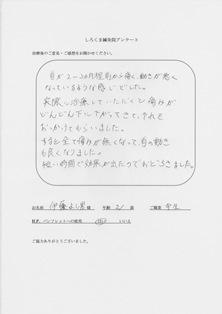 しろくま鍼灸院アンケート
治療後のご意見・ご感想をお聞かせください。
肩が2〜3か月程前から痛く、動きが悪く
なっているような感じでした。
実際に治療していただくと痛みが
どんどん下に下がってきて、それを
おっかけてもらいました。
すると全て痛みが無くなって、肩の動き
も良くなりました。
短い時間で効果が出たのでおどろきました。
お名前 様 年齢 21 歳 ご職業 学生
H.P. パンフレットへの使用 はい いいえ
ご協力ありがとうございました。